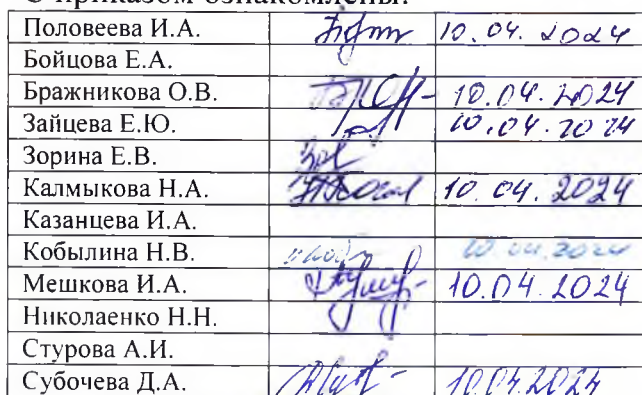 С приказом ознакомлены:
Половеева И.А. 10.04.2024
Бойцова Е.А.
Бражникова О.В. 10.04.2024
Зайцева Е.Ю. 10.04.2024
Зорина Е.В.
Калмыкова Н.А. 10.04.2024
Казанцева И.А.
Кобылина Н.В. 10.04.2024
Мешкова И.А. 10.04.2024
Николаенко Н.Н.
Стурова А.И.
Субочева Д.А. 10.04.2024